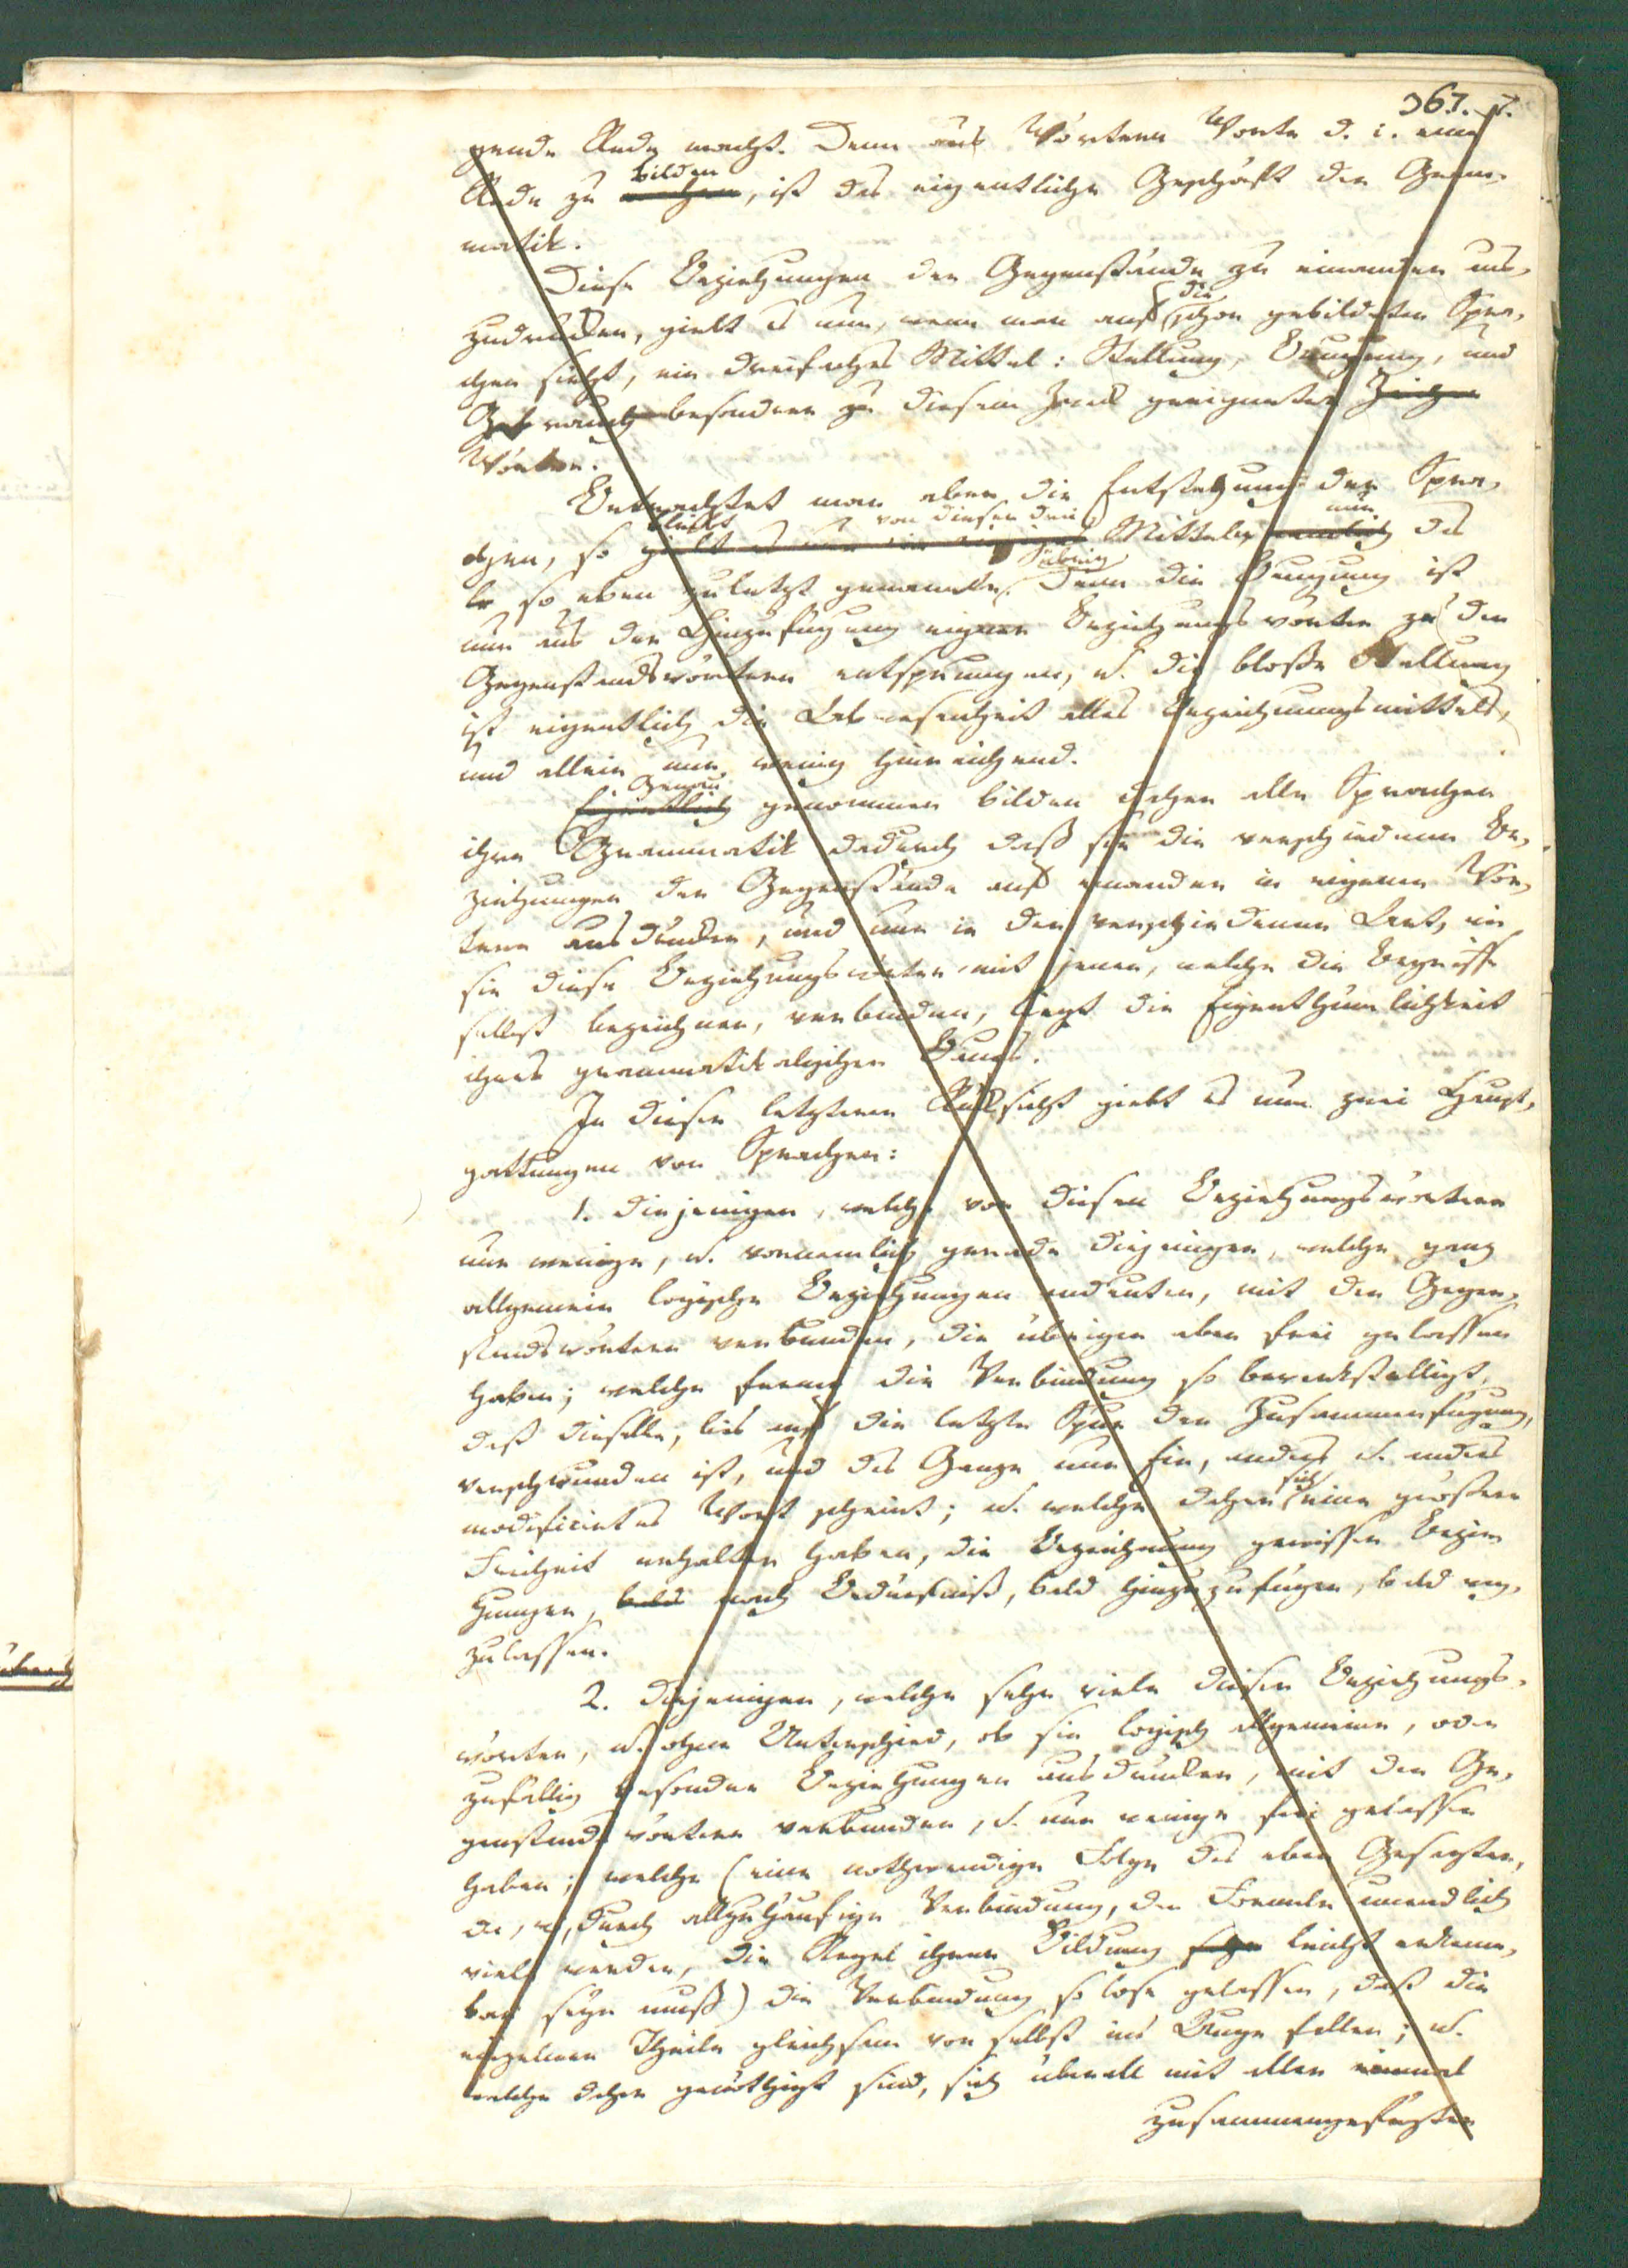 367. 7.
gende Rede macht. Denn aus Wörtern Worte d. i. eine
bilden
Rede zu machen, ist das eigentliche Geschäft der Gram-
matik.
Diese Beziehungen der Gegenstände zu einander aus-
die
zudrukken, giebt es nun, wenn man auf schon gebildeten Spra-
chen sieht, ein dreifaches Mittel: Stellung, Beugung, und
Gebrauch besondrer zu diesem Zweck geeigneter Zeichen
Wörter.
Betrachtet man aber die Entstehung der Spra-
bleibt von diesen drei nur
chen, so giebt es nur ein einziges Mitteln, nemlich das
übrig
so eben zuletzt genannte. Denn die Beugung ist
nur aus der Hinzufügung eigner Beziehungswörter zu den
Gegenstandswörtern entsprungen, u. die bloße Stellung
ist eigentlich die Abwesenheit alles Bezeichnungsmittels,
und allein nur wenig hinreichend.
Genau
Eigentlich genommen bilden daher alle Sprachen
ihre Grammatik dadurch daß sie die verschiednen Be-
ziehungen der Gegenstände auf einander in eigenen Wör-
tern ausdrukken, und nur in der verschiedenen Art, wie
sie diese Beziehungswörter mit jenen, welche die Begriffe
selbst bezeichnen, verbinden, liegt die Eigenthümlichkeit
ihres grammatikalischen Baues.
In dieser letzteren Rüksicht giebt es nun zwei Haupt-
gattungen von Sprachen:
1. diejenigen, welche von diesen Beziehungswörtern
nur wenige, u. vornemlich gerade diejenigen, welche ganz
allgemein logische Beziehungen andeuten, mit den Gegen-
standswörtern verbunden, die übrigen aber frei gelassen
haben; welche ferner die Verbindung so bewerkstelligt,
daß dieselbe, bis auf die letzte Spur der Zusammenfügung,
verschwunden ist, und das Ganze nur Ein, anders u. anders
sich
modificirtes Wort scheint; u. welche daher eine größere
Freiheit erhalten haben, die Bezeichnung gewisser Bezie-
hungen, bald nach Bedürfniß, bald hinzuzufügen, bald weg-
zulassen.
2. diejenigen, welche sehr viele dieser Beziehungs-
wörter, u. ohne Unterschied, ob sie logisch allgemeine, oder
zufällig besondre Beziehungen ausdrukken, mit den Ge-
genstandswörtern verbunden, u. nur wenige frei gelassen
haben; welche (eine nothwendige Folge des eben Gesagten,
da, wo, durch allzuhäufige Verbindung, der Formeln unendlich
viele werden, die Regel ihrer Bildung sehr leicht erkenn-
bar seyn muß) die Verbindung so lose gelassen, daß die
einzelnen Theile gleichsam von selbst ins Auge fallen; u.
welche daher genöthigt sind, sich überall mit allen einmal
zusammengefügten